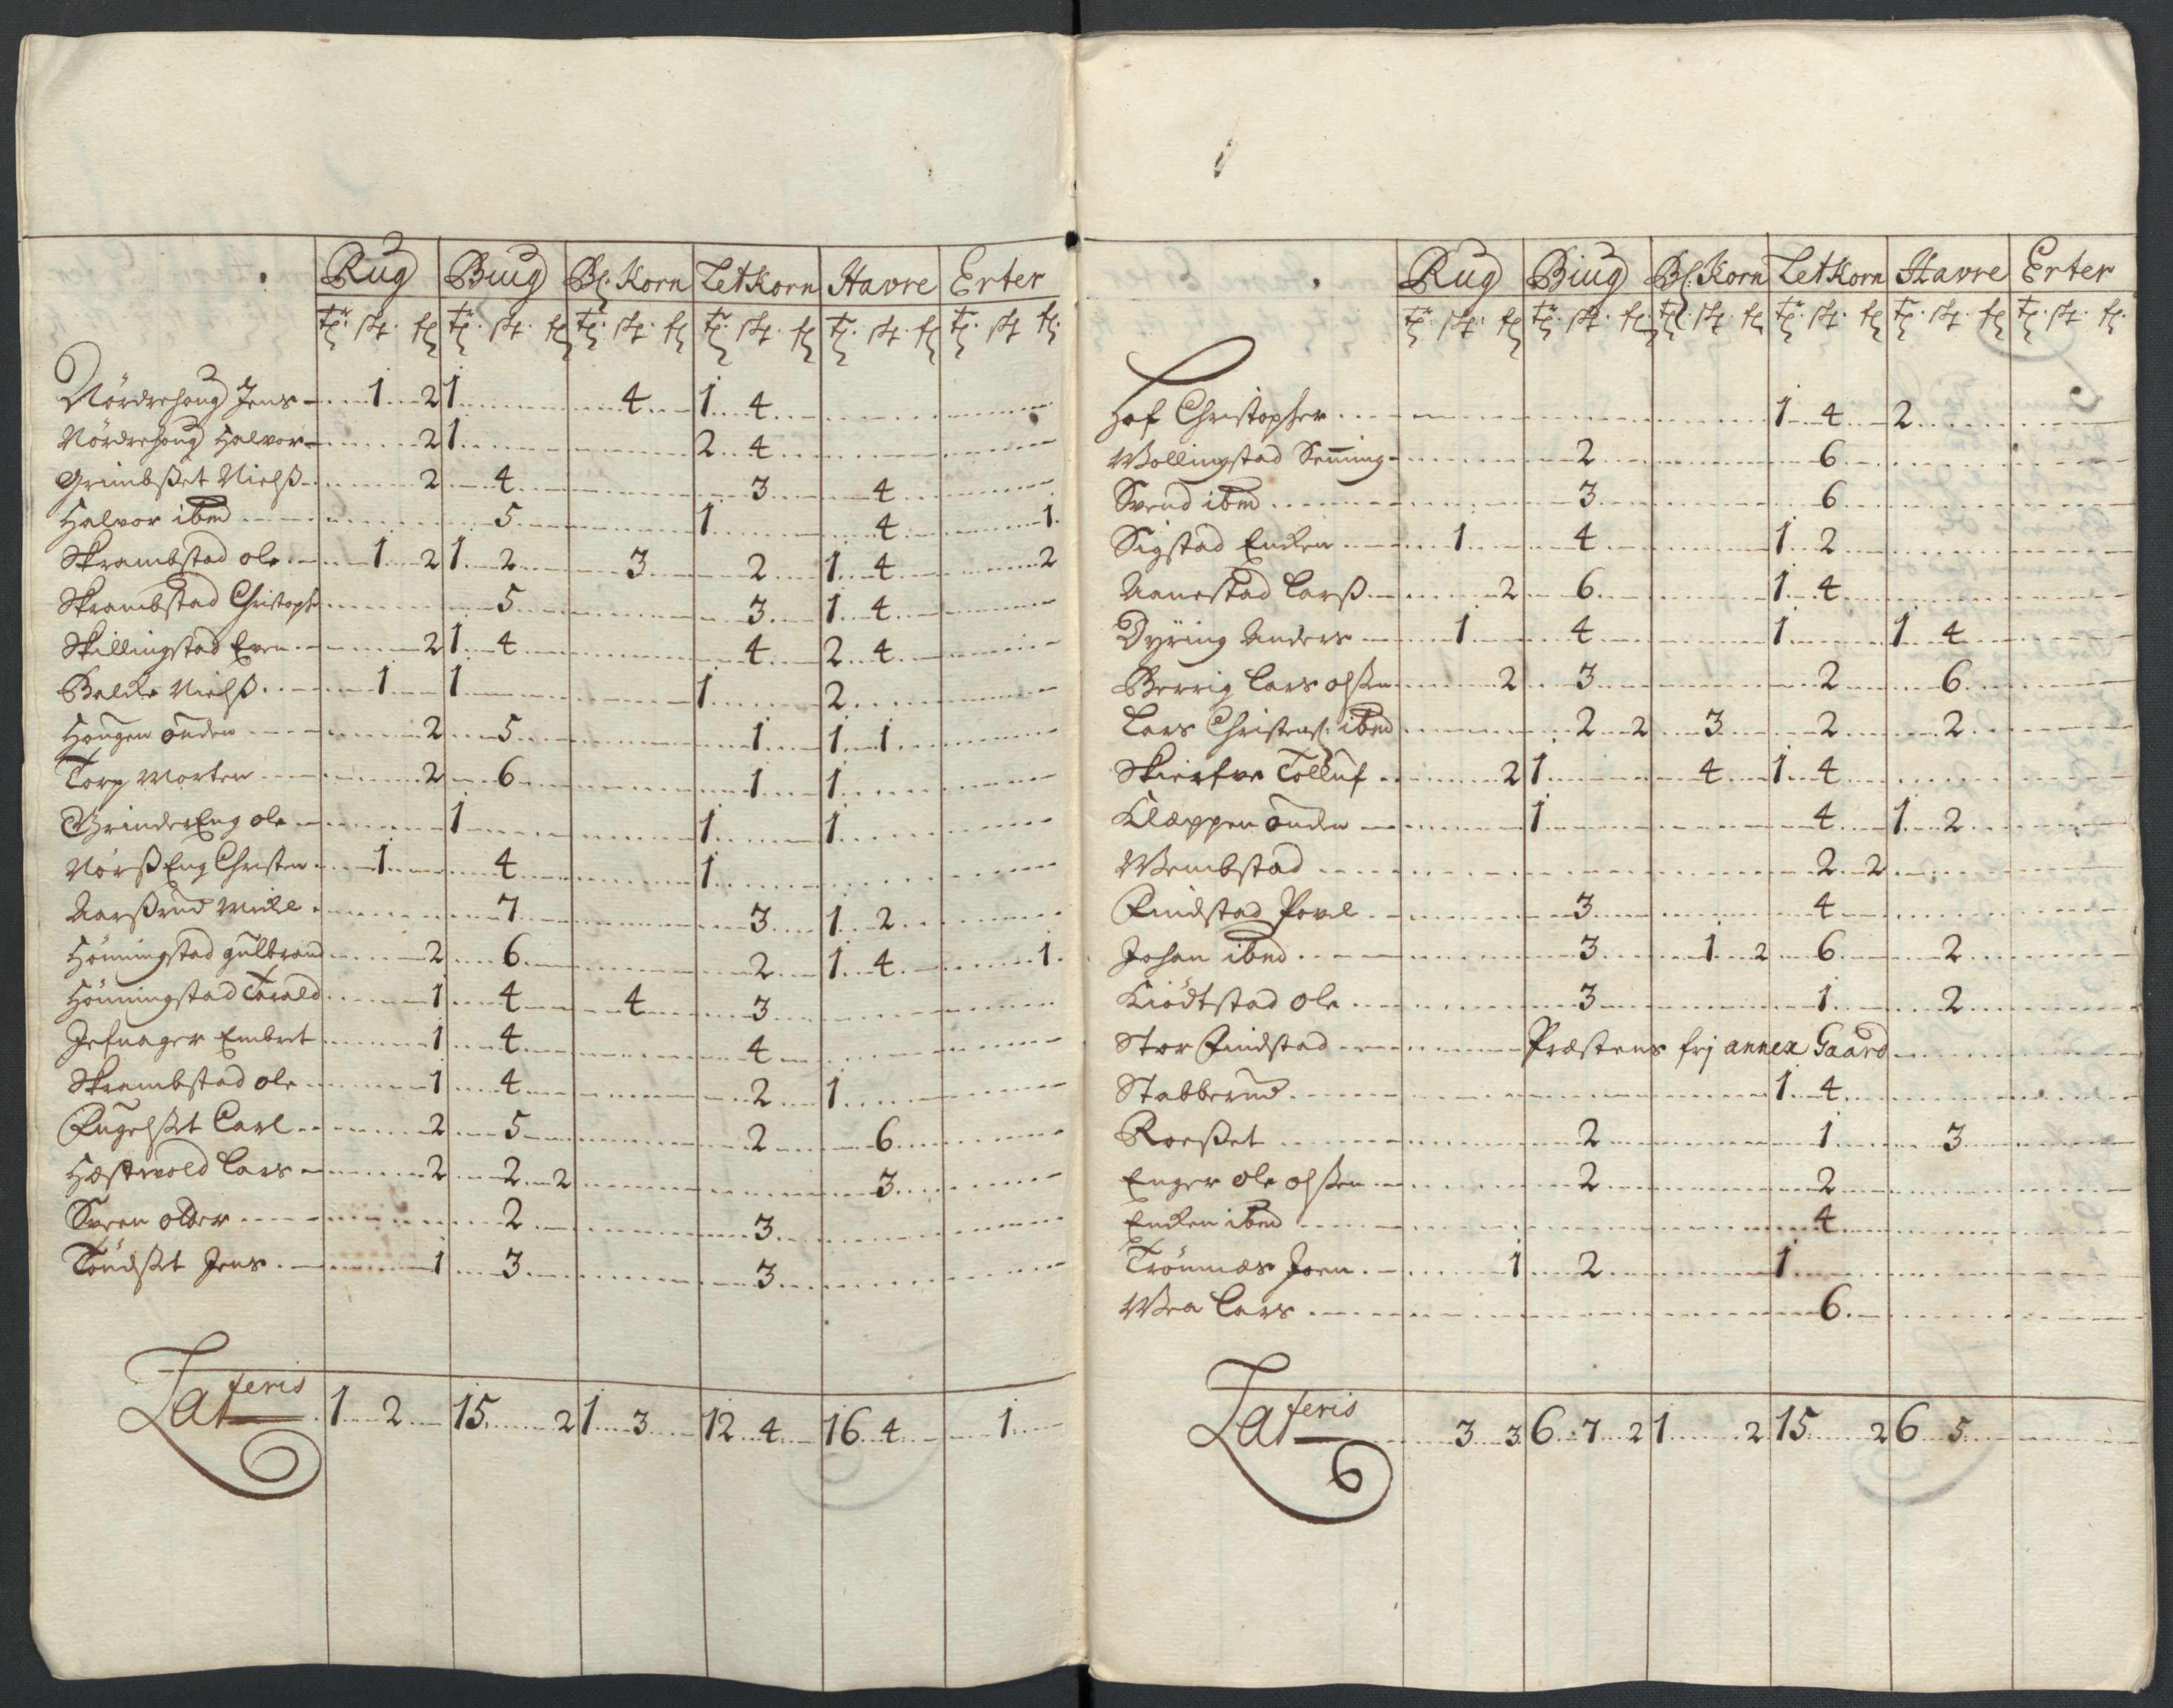 Rug Biug Bl. Korn Letkorn Havre Erter
tr. sk. fl. tr. sk. fl. tr. sk. fl. tr. sk. fl. tr. sk. fl. tr. sk. fl.
Nördrehoug Jens 1 2 1 4 1 4
Nördrehoug Halvor 2 1 2 4
Grimbßet Nielß 2 4 3 4
Halvor ibid 5 1 4 1
Skrambstad ole 1 2 1 2 3 2 1 4 2
Skrambstad Christoph 5 3 1 4
Skillingstad Even 2 1 4 4 2 4
Balcke Nielß 1 1 1 2
Hougen önden 2 5 1 1 1
Torp Morten 2 6 1 1
GrinderEng ole 1 1 1
NörßEng Christen 1 4 1
Aarßrud Mickel 7 3 1 2
Hönningstad gulbrand 2 6 2 1 4 1
Hönningstad Tarald 1 4 4 3
Jefnager Embret 1 4 4
Skrambstad ole 1 4 2 1
Fugelset Carl 2 5 2 6
Hæstevold Lars 2 2 2 3
Sveen older 2 3
Töndset Jens 1 3 3
Lateris 1 2 15 2 1 3 12 4 16 4 1
Rug Biug Bl. Korn Letkorn Havre Erter
tr. sk. fl. tr. sk. fl. tr. sk. fl. tr. sk. fl. tr. sk. fl. tr. sk. fl.
Hof Christopher 1 4 2
Wollingstad 2 6
Svend ibid 3 6
Sigstad Encken 1 4 1 2
Aanestad Larß 2 6 1 4
Dyring Anders 1 4 1 1 4
Berrig Lars olßen 2 3 2 6
Lars Christens: ibid 2 2 3 2 2
Skierfve Tolluf 2 1 4 1 4
Klæppen önden 1 4 1 2
Wembstad 2 2
Findstad Povel 3 4
Johan ibid 3 1 2 6 2
Kiödtstad ole 3 1 2
Stor Findstad Præstens frj annex Gaard
Stabberud 1 4
Roeßet 2 1 3
Enger ole olßen 2 2
Encken ibid 4
Trönnæs Joen 1 2 1
Wea Lars 6
Lateris 3 3 6 7 2 1 2 15 2 6 5